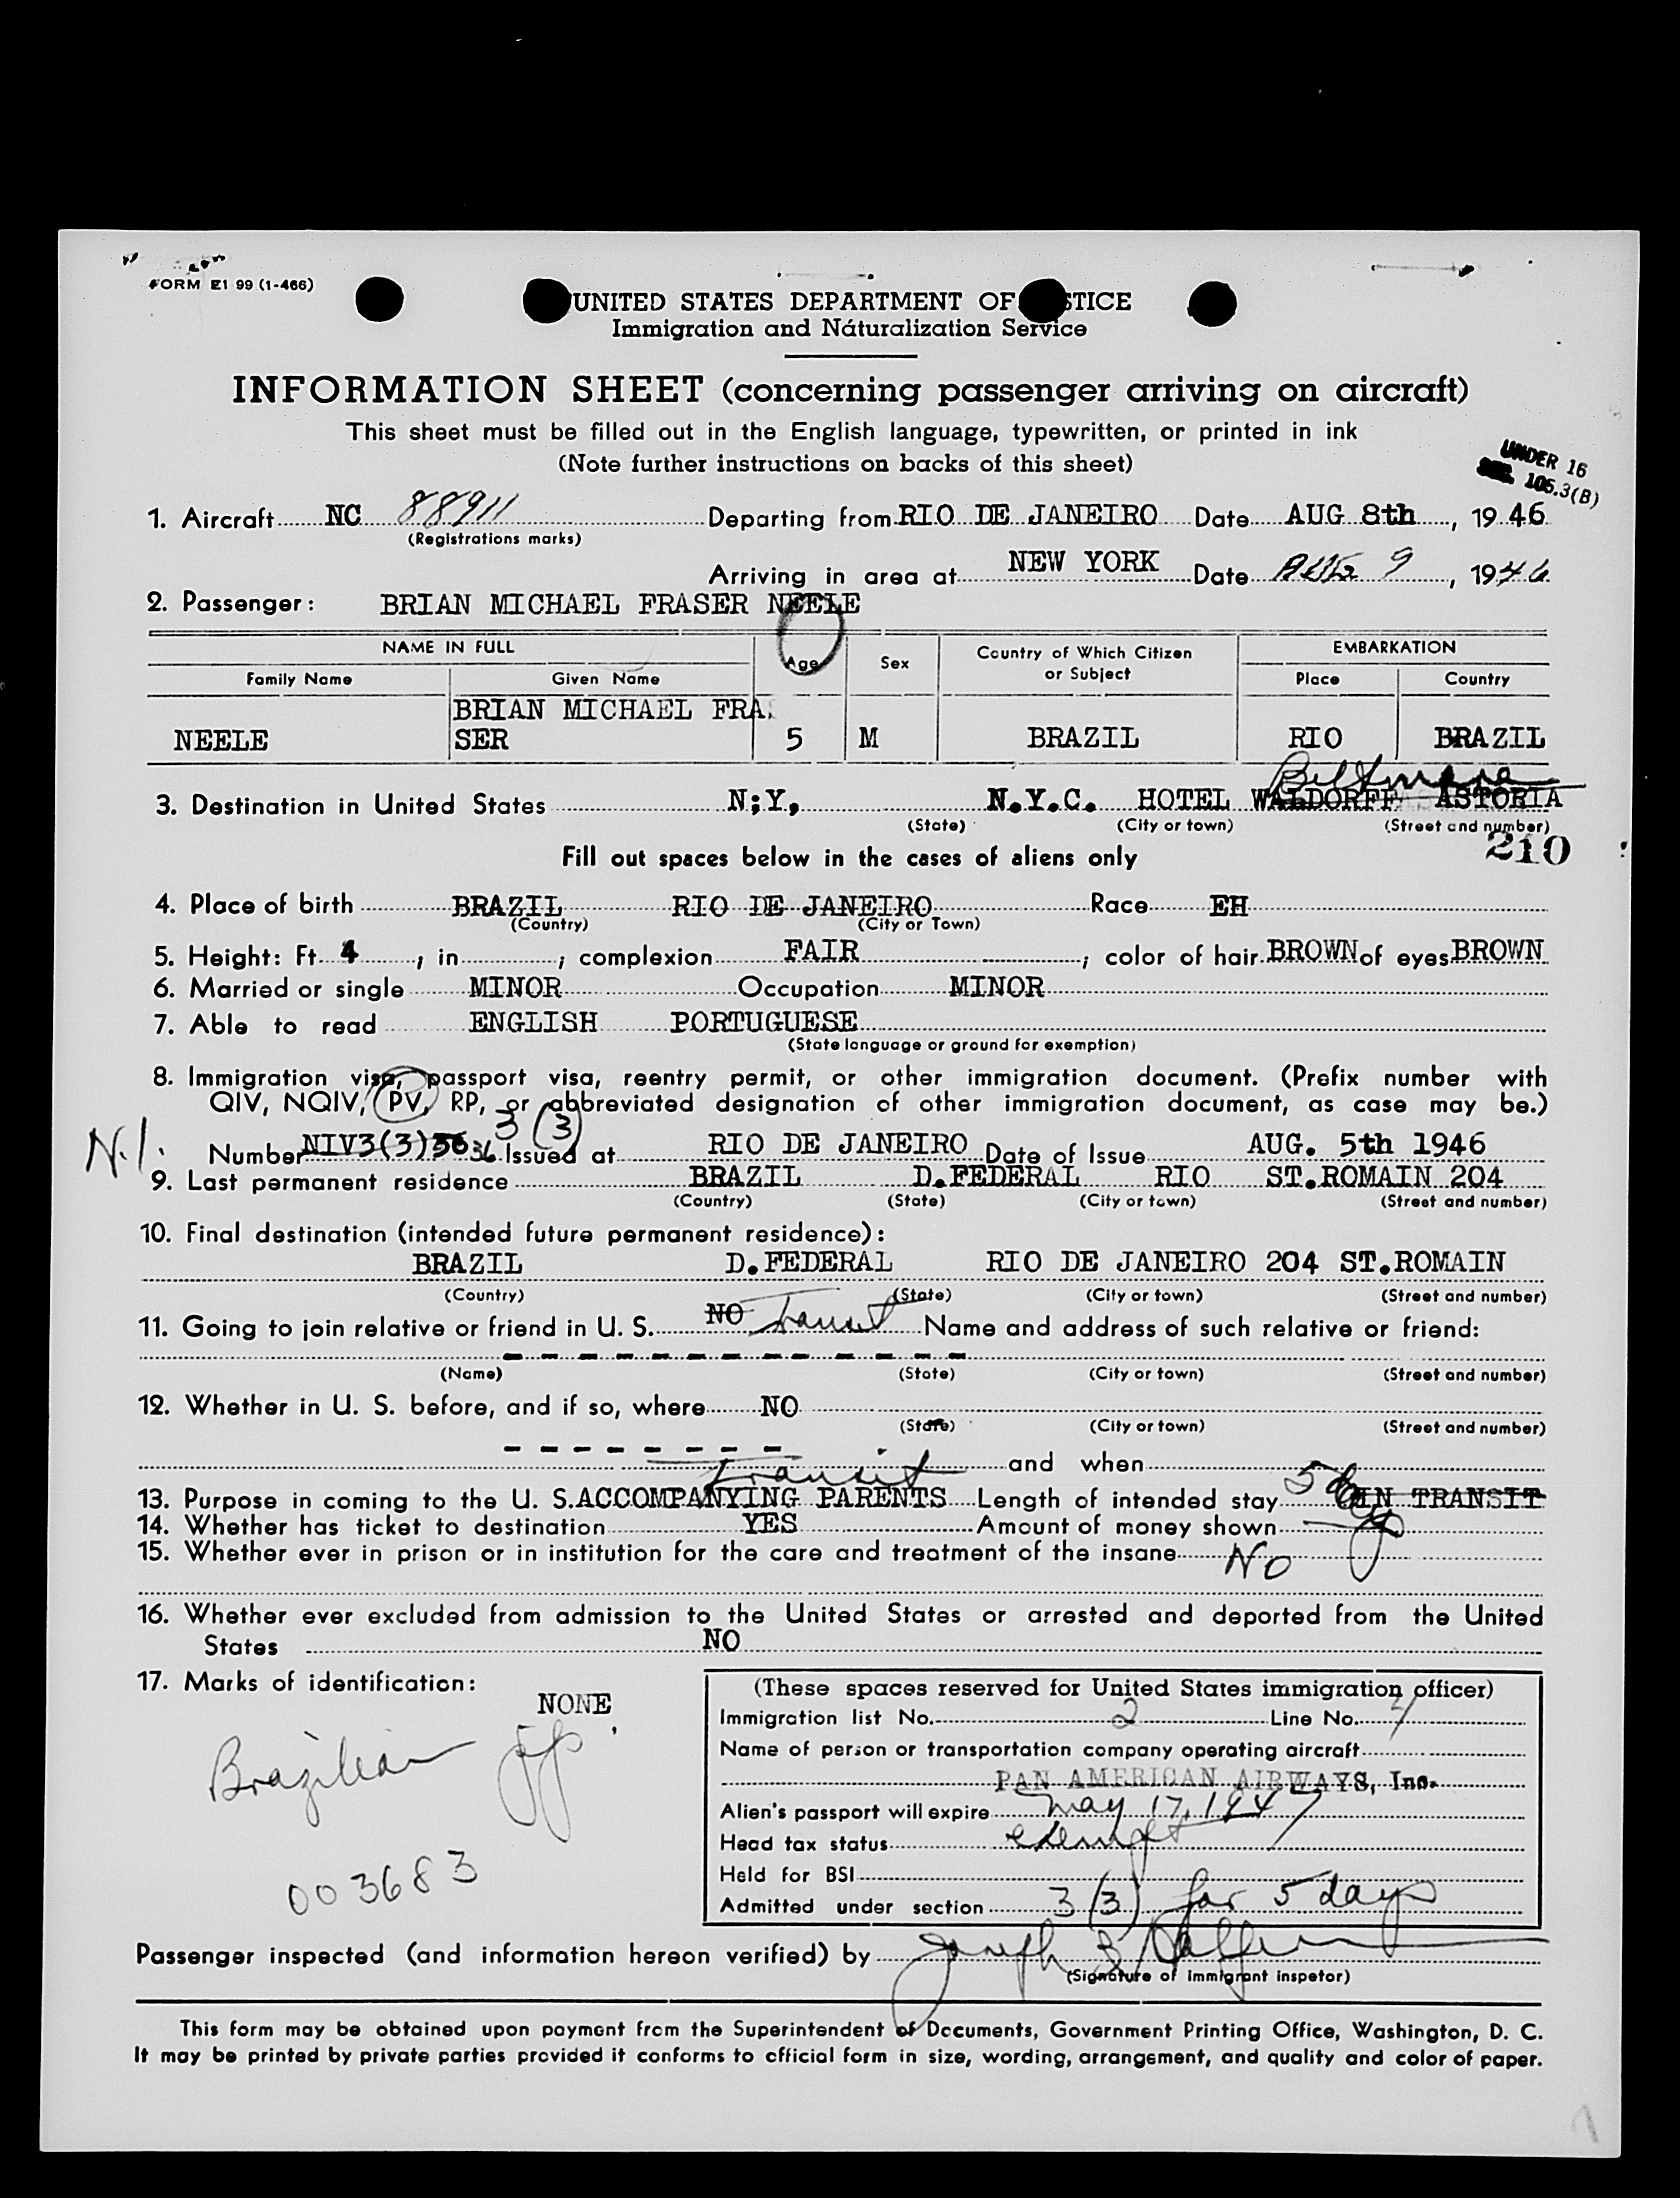 FORM E1 99 (1-466)
UNITED STATES DEPARTMENT OF STICE
Immigration and Náturalization Service
INFORMATION SHEET (concerning passenger arriving on aircraft)
This sheet must be filled out in the English language, typewritten, or printed in ink
(Note further instructions on backs of this sheet)
UNDER 16
SEC. 105.3(B)
1. Aircraft NC 88911 Departing from RIO DE JANEIRO Date AUG 8th, 1946
(Registrations marks)
Arriving in area at NEW YORK Date AUG 9, 1946
2. Passenger: BRIAN MICHAEL FRASER NEELE
NAME IN FULL Age Sex Country of Which Citizen or Subject EMBARKATION
Family Name Given Name Place Country
BRIAN MICHAEL FRA
NEELE SER 5 M BRAZIL RIO BRAZIL
Biltmore
3. Destination in United States N;Y, N.Y.C. HOTEL WALDORFF ASTORIA
(State) (City or town) (Street and number)
210
Fill out spaces below in the cases of aliens only
4. Place of birth BRAZIL RIO DE JANEIRO Race EH
(Country) (City or Town)
5. Height: Ft. 4, in ; complexion FAIR ; color of hair BROWN of eyes BROWN
6. Married or single MINOR Occupation MINOR
7. Able to read ENGLISH PORTUGUESE
(State language or ground for exemption)
8. Immigration visa, passport visa, reentry permit, or other immigration document. (Prefix number with
QIV, NQIV, PV, RP, or abbreviated designation of other immigration document, as case may be.)
3 (3)
N.I. Number NIV3(3)36 36 Issued at RIO DE JANEIRO Date of Issue AUG. 5th 1946
9. Last permanent residence BRAZIL D.FEDERAL RIO ST.ROMAIN 204
(Country) (State) (City or town) (Street and number)
10. Final destination (intended future permanent residence):
BRAZIL D.FEDERAL RIO DE JANEIRO 204 ST.ROMAIN
(Country) (State) (City or town) (Street and number)
11. Going to join relative or friend in U. S. NO Transit Name and address of such relative or friend:
(Name) (State) (City or town) (Street and number)
12. Whether in U. S. before, and if so, where NO
(State) (City or town) (Street and number)
and when
Transit 5 day
13. Purpose in coming to the U. S. ACCOMPANYING PARENTS Length of intended stay IN TRANSIT
14. Whether has ticket to destination YES Amount of money shown
15. Whether ever in prison or in institution for the care and treatment of the insane No
16. Whether ever excluded from admission to the United States or arrested and deported from the United
States NO
17. Marks of identification:
NONE
Brazilian pp
003683
(These spaces reserved for United States immigration officer)
Immigration list No. 2 Line No.
Name of person or transportation company operating aircraft
PAN AMERICAN AIRWAYS, Inc.
Alien's passport will expire May 17, 1947
Head tax status exempt
Held for BSI
Admitted under section 3(3) for 5 days
Passenger inspected (and information hereon verified) by Joseph
(Signature of immigrant inspetor)
This form may be obtained upon payment from the Superintendent of Documents, Government Printing Office, Washington, D. C.
It may be printed by private parties provided it conforms to official form in size, wording, arrangement, and quality and color of paper.